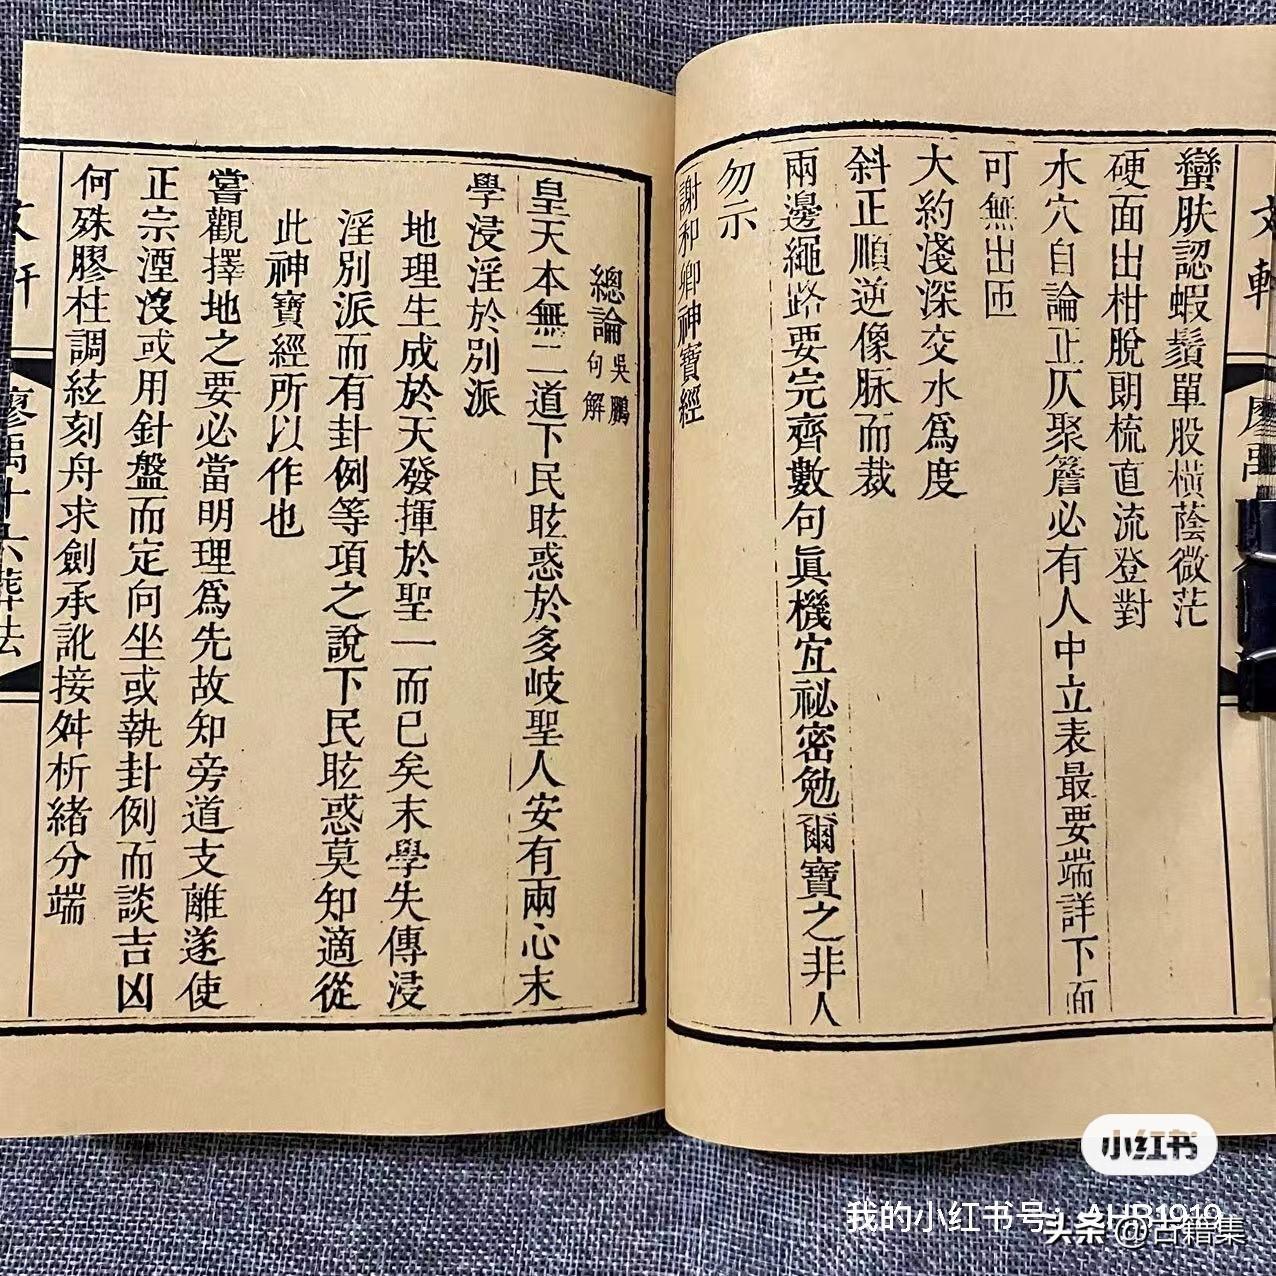 蠻肤認蝦鬚單股橫蔭微茫
硬面出柑脫朗梳直流登對
水穴自論正仄聚簷必有人中立表最要端詳下面
可無出匝
大約淺深交水爲度
斜正順逆像脉而裁
兩邊繩路要完齊數句眞機宐祕密勉爾寶之非人
勿示
謝和卿神寶經
總論
吳鵬
句解
皇天本無二道下民眩惑於多岐聖人安有兩心末
學浸淫於別派
地理生成於天發揮於聖一而已矣末學失傳浸
淫別派而有卦例等項之說下民眩惑莫知適從
此神寶經所以作也
嘗觀擇地之要必當明理爲先故知旁道支離遂使
正宗湮沒或用針盤而定向坐或執卦例而談吉凶
何殊膠柱調絃刻舟求劍承訛接舛析緒分端
廖禹十六葬法
小红书
我的小红书号：AHB1919
头条@古籍集